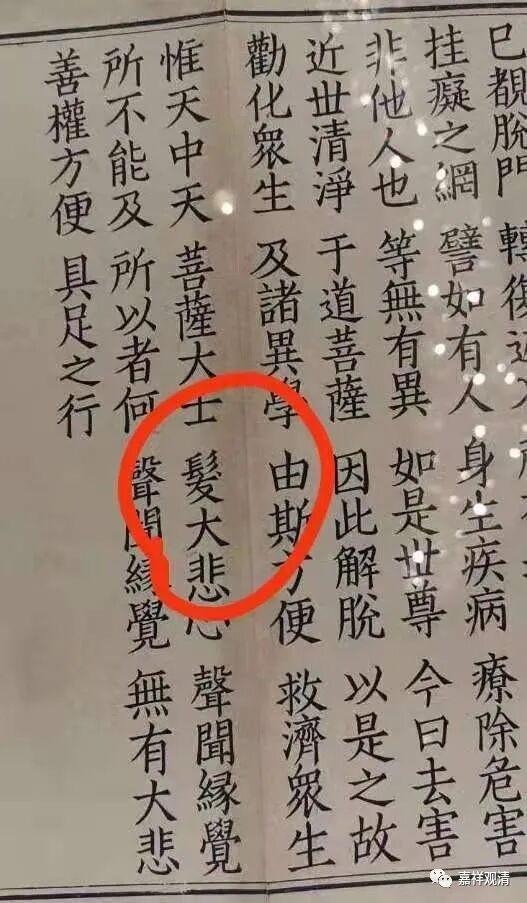 巳覩脫門 轉復
挂癡之網 譬如有人 身生疾病 療除危害
非他人也 等無有異 如是世尊 今曰去害
近世清淨 于道菩薩 因此解脫 以是之故
勸化眾生 及諸異學 由斯方便 救濟眾生
惟天中天 菩薩大士 髮大悲心 聲聞緣覺
所不能及 所以者何 聲聞緣覺 無有大悲
善權方便 具足之行
嘉祥观清